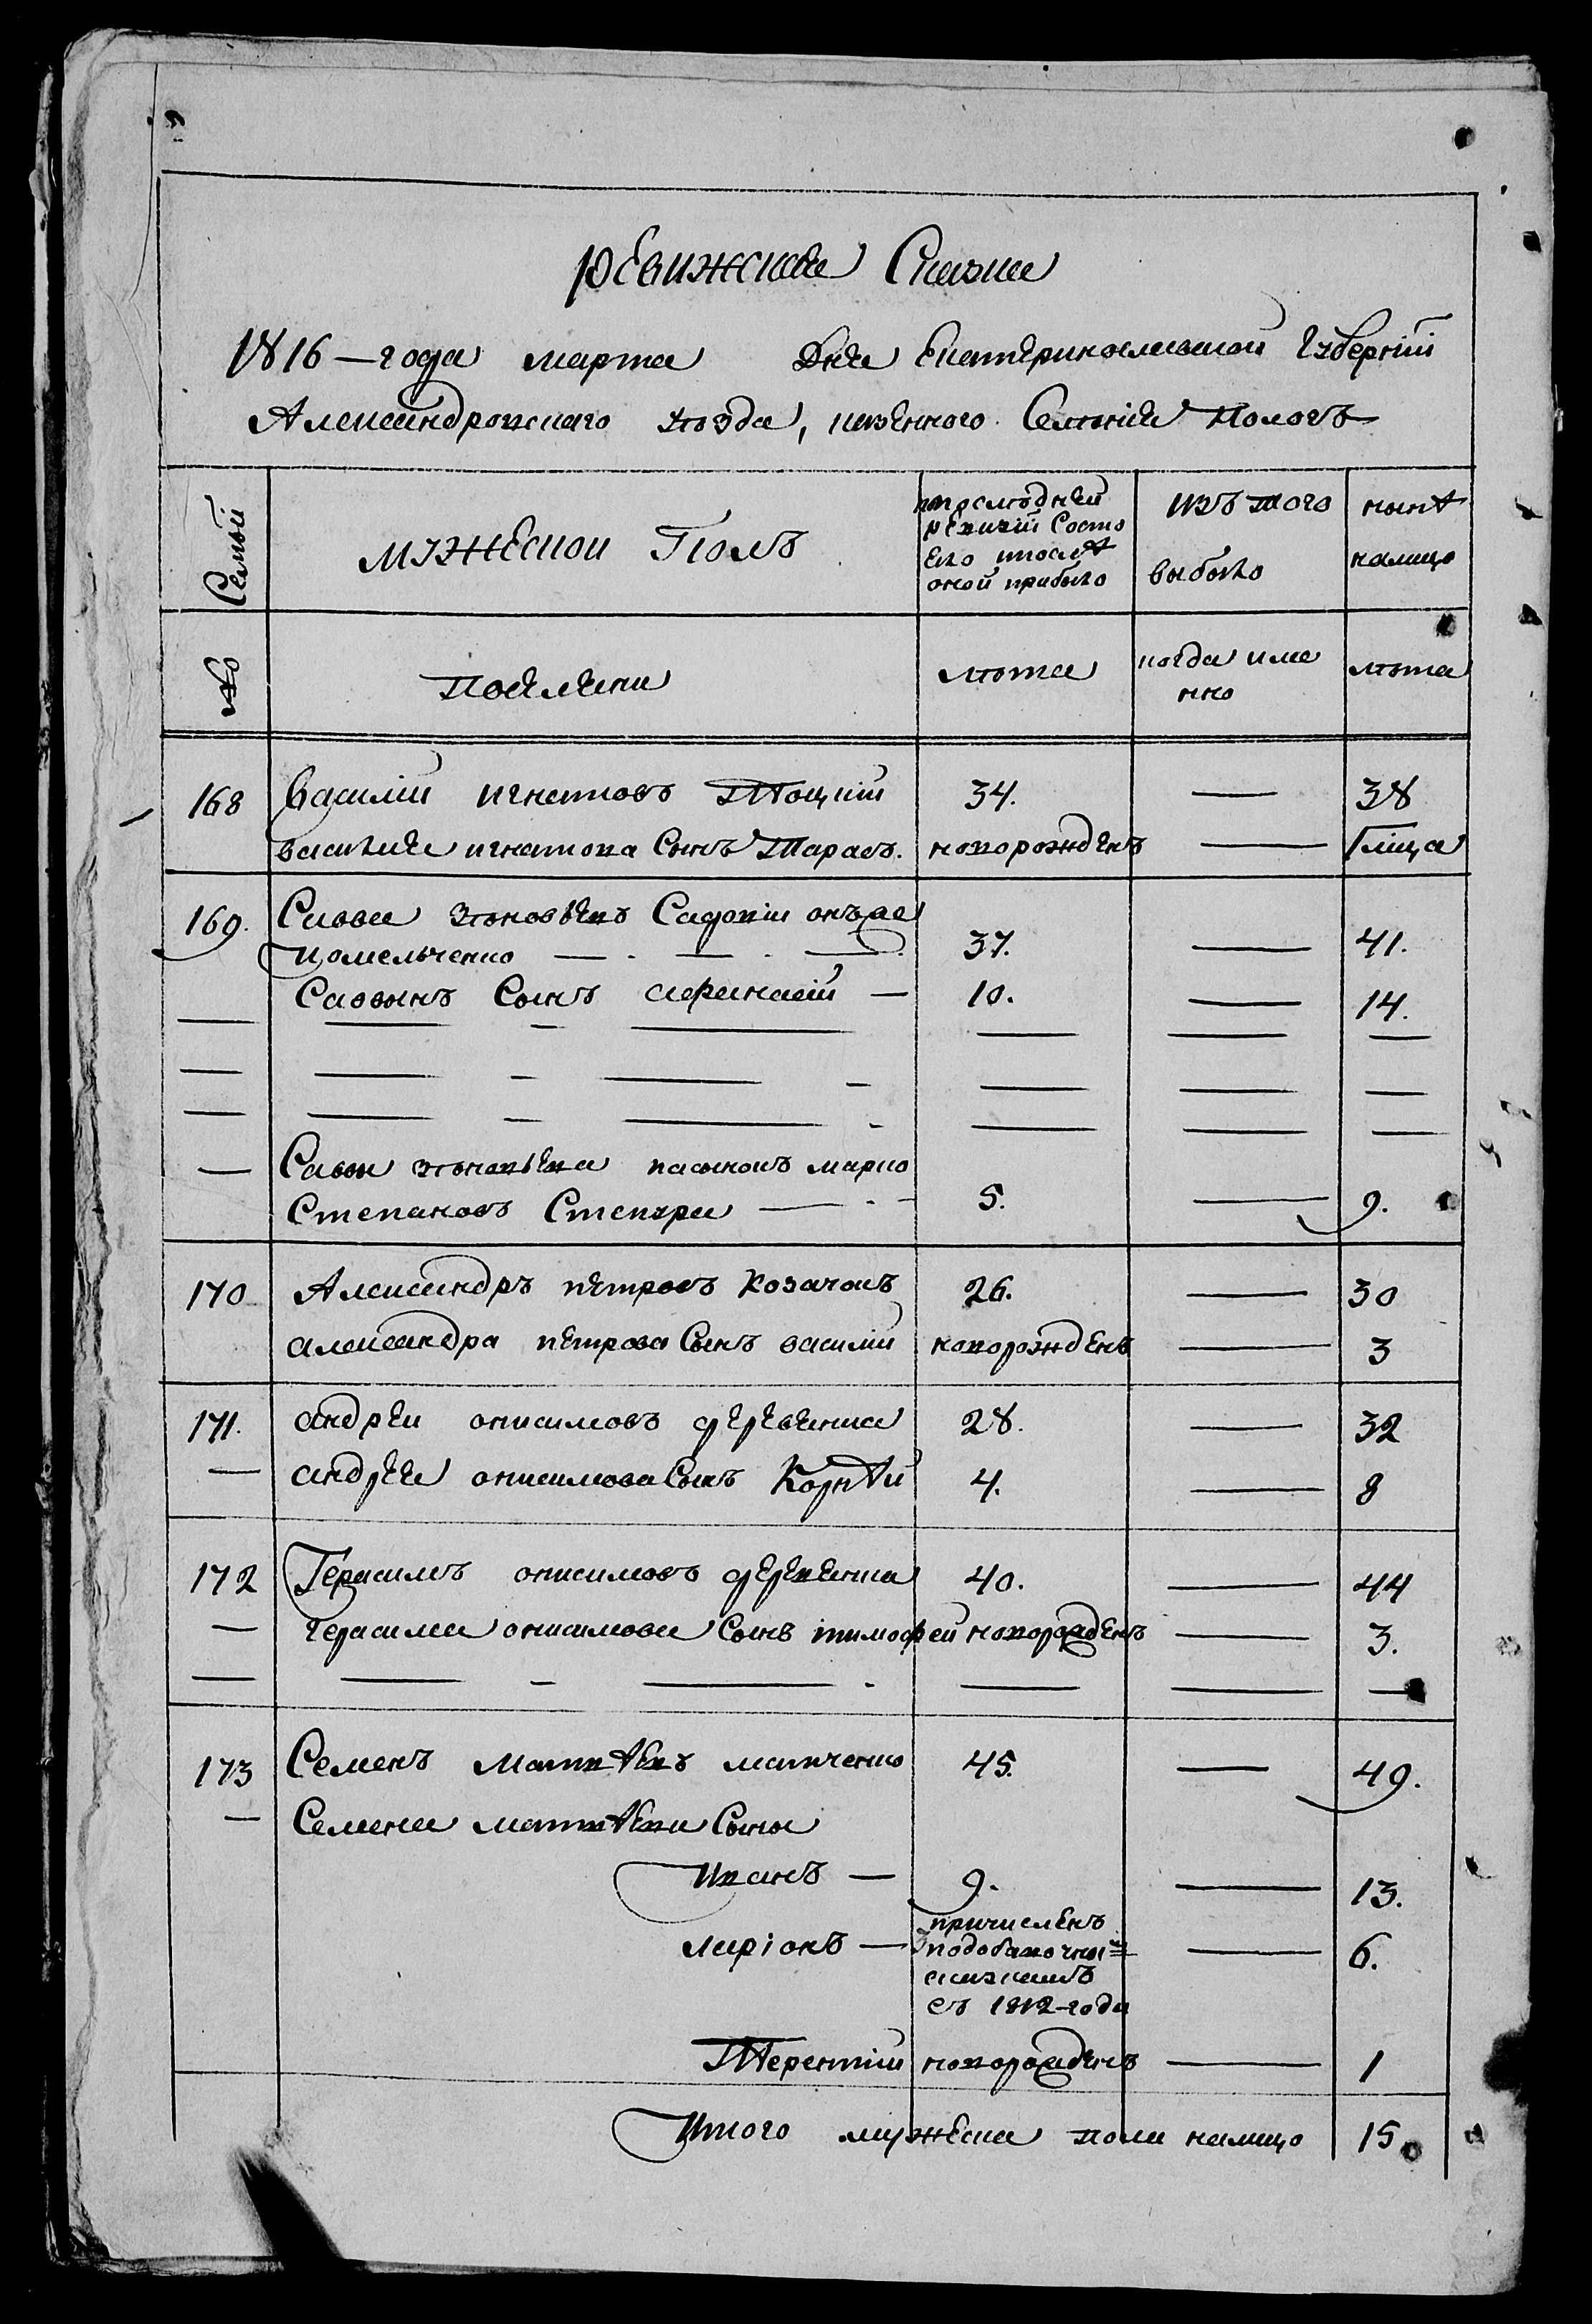 ревижская Сказка
1816 — года марта Дня Екатеринославской губернїй
Александровскаго уѣзда, казенного Селѣнія Пологъ
Семьй
мужеской Полъ
последней
ревизїи Состо
яло после
оной прибыло
изъ того
выбыло
нынѣ
налицо
№
поселяни
лѣта
когда име
нно
лѣта
168 Василїй игнатовъ Тоцкїй 34. — 38
василия игнатова Сынъ Тарасъ. новорожденъ — 1 мїца
169. Савва
Сидорїи онъже
Цомельченко — . — . — 37. — 41.
Саввинъ Сынъ афанасїй — 10. — 14.
— — - — — — —
— — - — - — — —
— — - — - — — —
— Савы пасынокъ марко
Степановъ — . - 5. — 9.
170 Александръ петровъ Козачокъ 26. — 30
александра петрова Сынъ василїй новорожденъ — 3
171. андреи онисимовъ деревенка 28. — 32
— андрея онисимова Сынъ Корнѣй 4. — 8
172 Герасимъ онисимовъ деревенка 40. — 44
— герасима онисимова Сынъ тимофей новорожденъ — 3.
— — - — . — — —
173 Семенъ Матвѣевъ матченко 45. — 49.
— Семена матвѣева Сыны
Иванъ — 9. — 13.
ларїонъ — причисленъ
подобавочны
сказкамъ
съ 1812-года — 6.
Терентїи новорожденъ — 1
Итого мужеска пола налицо 15